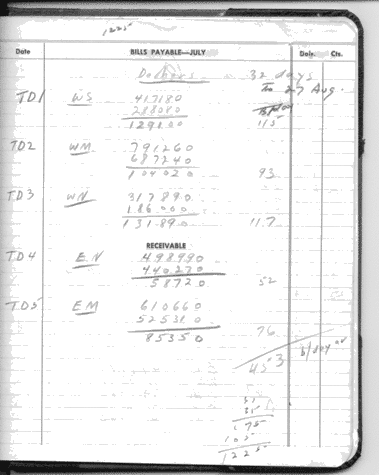 1225
Date BILLS PAYABLE—JULY Dols. Cts.
32 days
To 27 Aug.
TD1 WS 417180
288080
129100 115
TD2 WM 791260
687240
104020 93
TD3 WN 317890
186000
131890 117
RECEIVABLE
TD4 EN 498990
440270
58720 52
TD5 EM 610660
525310
85350 76
453 b/day
35
35
175
105
1225